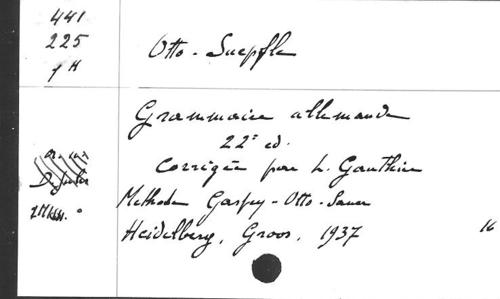 441
225
1 H
Otto - Suepfle
Grammaire allemande
22e ed.
Corrigée par L. Gauthier
Methode Gaspey - Otto - Sauer
Heidelberg, Groos, 1937
16